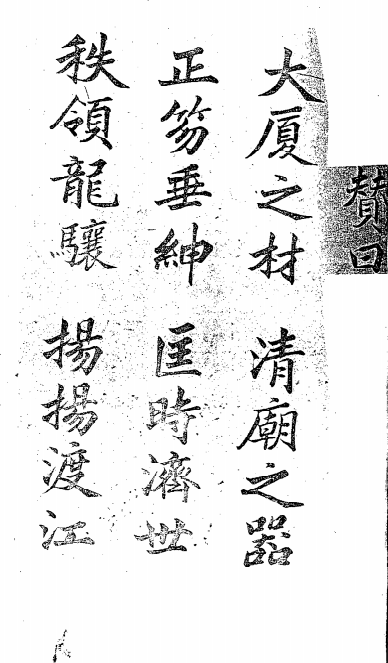 贊曰
大厦之材　清廟之器
正笏垂紳　匡時濟世
秩領龍驤　揚揚渡江